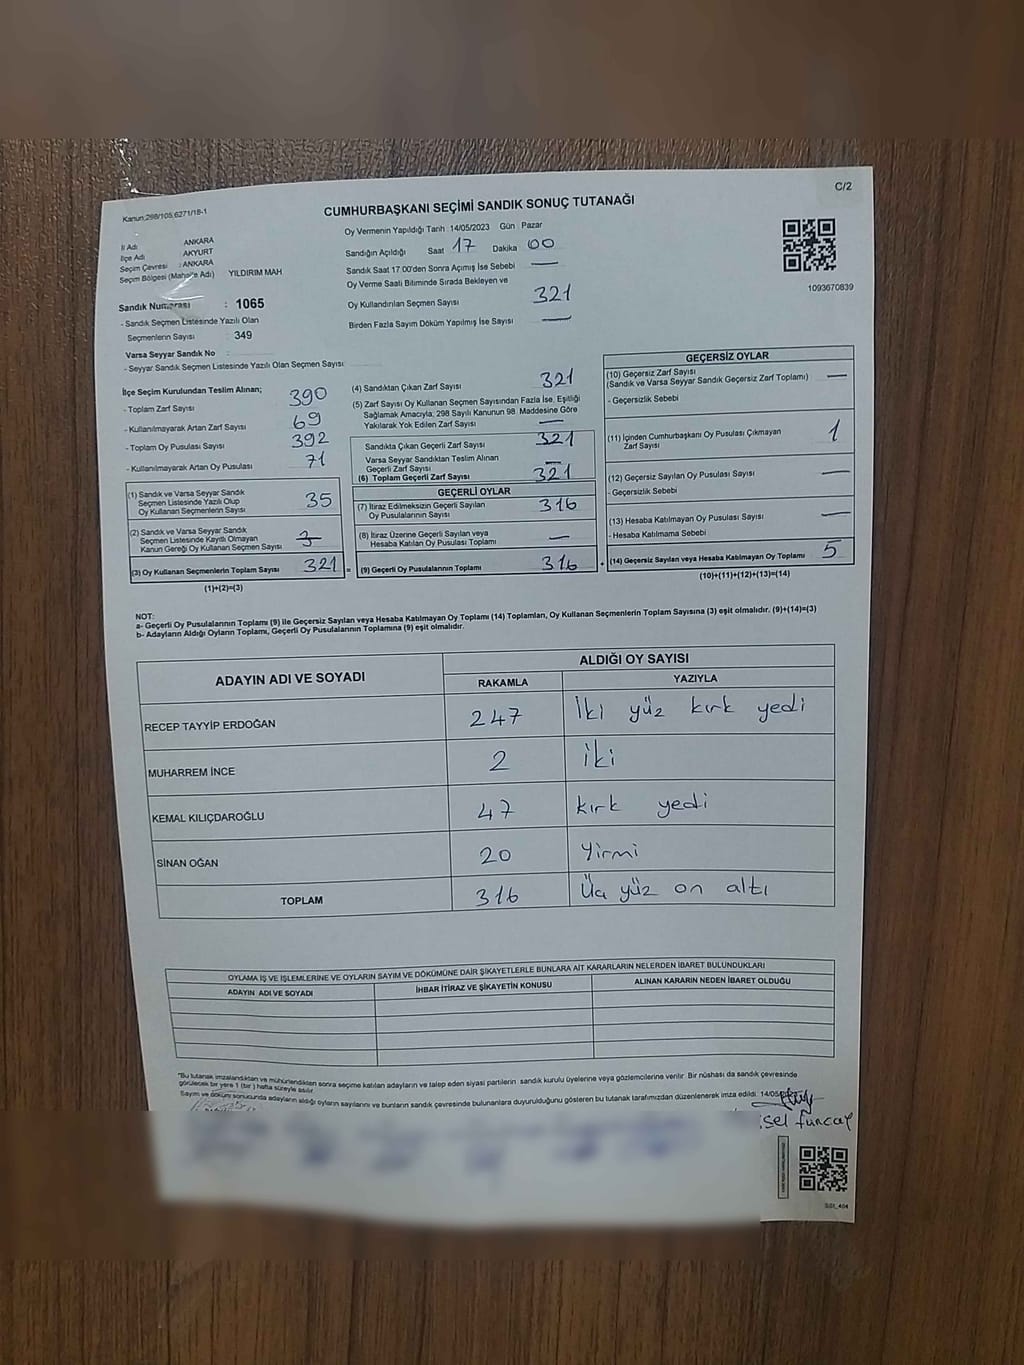 C/2
Kanun:298/105,6271/18-1
CUMHURBAŞKANI SEÇİMİ SANDIK SONUÇ TUTANAĞI
İl Adı ANKARA
İlçe Adı AKYURT
Seçim Çevresi : ANKARA
Seçim Bölgesi (Mahalle Adı) YILDIRIM MAH
Sandık Numarası : 1065
- Sandık Seçmen Listesinde Yazılı Olan
Seçmenlerin Sayısı 349
Varsa Seyyar Sandık No :
- Seyyar Sandık Seçmen Listesinde Yazılı Olan Seçmen Sayısı
Oy Vermenin Yapıldığı Tarih 14/05/2023 Gün Pazar
Sandığın Açıldığı Saat 17 Dakika 00
Sandık Saat 17.00'den Sonra Açılmış İse Sebebi —
Oy Verme Saati Bitiminde Sırada Bekleyen ve
Oy Kullandırılan Seçmen Sayısı 321
Birden Fazla Sayım Döküm Yapılmış İse Sayısı —
1093670839
İlçe Seçim Kurulundan Teslim Alınan;
- Toplam Zarf Sayısı 390
- Kullanılmayarak Artan Zarf Sayısı 69
- Toplam Oy Pusulası Sayısı 392
- Kullanılmayarak Artan Oy Pusulası 71
(1) Sandık ve Varsa Seyyar Sandık
Seçmen Listesinde Yazılı Olup
Oy Kullanan Seçmenlerin Sayısı 35
(2) Sandık ve Varsa Seyyar Sandık
Seçmen Listesinde Kayıtlı Olmayan
Kanun Gereği Oy Kullanan Seçmen Sayısı 3
(3) Oy Kullanan Seçmenlerin Toplam Sayısı 321 =
(1)+(2)=(3)
(4) Sandıktan Çıkan Zarf Sayısı 321
(5) Zarf Sayısı Oy Kullanan Seçmen Sayısından Fazla İse, Eşitliği
Sağlamak Amacıyla; 298 Sayılı Kanunun 98. Maddesine Göre
Yakılarak Yok Edilen Zarf Sayısı —
Sandıkta Çıkan Geçerli Zarf Sayısı 321
Varsa Seyyar Sandıktan Teslim Alınan
Geçerli Zarf Sayısı —
(6) Toplam Geçerli Zarf Sayısı 321
GEÇERLİ OYLAR
(7) İtiraz Edilmeksizin Geçerli Sayılan
Oy Pusulalarının Sayısı 316
(8) İtiraz Üzerine Geçerli Sayılan veya
Hesaba Katılan Oy Pusulası Toplamı —
(9) Geçerli Oy Pusulalarının Toplamı 316 +
GEÇERSİZ OYLAR
(10) Geçersiz Zarf Sayısı —
(Sandık ve Varsa Seyyar Sandık Geçersiz Zarf Toplamı)
- Geçersizlik Sebebi
(11) İçinden Cumhurbaşkanı Oy Pusulası Çıkmayan
Zarf Sayısı 1
(12) Geçersiz Sayılan Oy Pusulası Sayısı —
- Geçersizlik Sebebi
(13) Hesaba Katılmayan Oy Pusulası Sayısı —
- Hesaba Katılmama Sebebi
(14) Geçersiz Sayılan veya Hesaba Katılmayan Oy Toplamı 5
(10)+(11)+(12)+(13)=(14)
NOT:
a- Geçerli Oy Pusulalarının Toplamı (9) ile Geçersiz Sayılan veya Hesaba Katılmayan Oy Toplamı (14) Toplamları, Oy Kullanan Seçmenlerin Toplam Sayısına (3) eşit olmalıdır. (9)+(14)=(3)
b- Adayların Aldığı Oyların Toplamı, Geçerli Oy Pusulalarının Toplamına (9) eşit olmalıdır.
ADAYIN ADI VE SOYADI ALDIĞI OY SAYISI
RAKAMLA YAZIYLA
RECEP TAYYİP ERDOĞAN 247 İki yüz kırk yedi
MUHARREM İNCE 2 iki
KEMAL KILIÇDAROĞLU 47 kırk yedi
SİNAN OĞAN 20 Yirmi
TOPLAM 316 Üç yüz on altı
OYLAMA İŞ VE İŞLEMLERİNE VE OYLARIN SAYIM VE DÖKÜMÜNE DAİR ŞİKAYETLERLE BUNLARA AİT KARARLARIN NELERDEN İBARET BULUNDUKLARI
ADAYIN ADI VE SOYADI İHBAR İTİRAZ VE ŞİKAYETİN KONUSU ALINAN KARARIN NEDEN İBARET OLDUĞU
"Bu tutanak imzalandıktan ve mühürlendikten sonra seçime katılan adayların ve talep eden siyasi partilerin sandık kurulu üyelerine veya gözlemcilerine verilir. Bir nüshası da sandık çevresinde
görülecek bir yere 1 (bir) hafta süreyle asılır.
Sayım ve döküm sonucunda adayların aldığı oyların sayılarını ve bunların sandık çevresinde bulunanlara duyurulduğunu gösteren bu tutanak tarafımızdan düzenlenerek imza edildi. 14/05